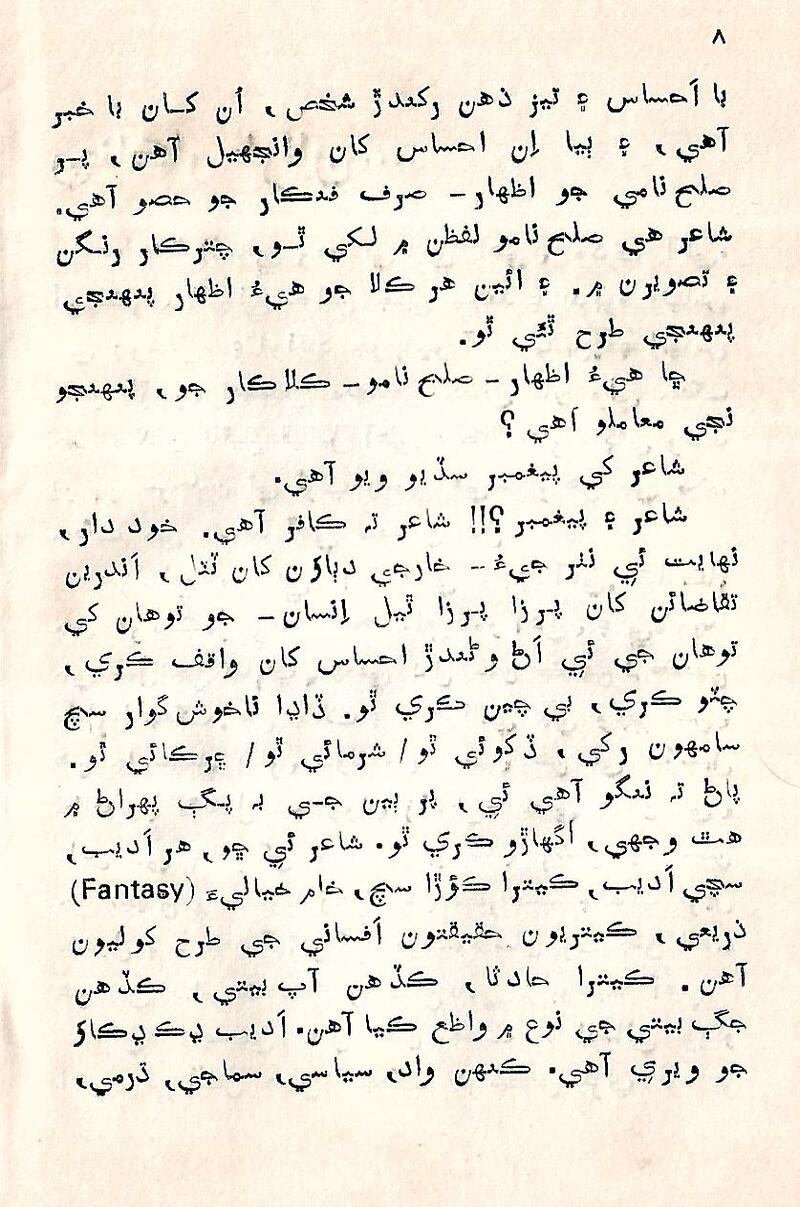 ٨
با اَحساس ۽ تيز ذهن رکندڙ شخص، اُن کان با خبر
آهي، ۽ ٻيا اِن احساس کان وانجهيل آهن، پر
صلح نامي جو اظهار – صرف فنڪار جو حصو آهي.
شاعر هي صلح نامو لفظن ۾ لکي ٿو، چترڪار رنگن
۽ تصويرن ۾. ۽ ائين هر ڪلا جو هيءُ اظهار پنهنجي
پنهنجي طرح ٿئي ٿو.
ڇا هيءُ اظهار – صلح نامو – ڪلاڪار جو، پنهنجو
نجي معاملو آهي؟
شاعر کي پيغمبر سڏيو ويو آهي.
شاعر ۽ پيغمبر؟!! شاعر ته ڪافر آهي. خود دار،
نهايت ئي نٿر جيءُ – خارجي دٻاؤن کان ٽٽل، اَندرين
تقاضائن کان پرزا پرزا ٿيل اِنسان – جو توهان کي
توهان جي ئي اَڻ وڻندڙ احساس کان واقف ڪري،
چٽو ڪري، بي چين ڪري ٿو. ڏاڍا ناخوش گوار سچ
سامهون رکي، ڏکوئي ٿو / شرمائي ٿو / ڇرڪائي ٿو.
پاڻ ته ننگو آهي ئي، پر ٻين جي به پڳ پهراڻ ۾
هٿ وجهي، اُگهاڙو ڪري ٿو. شاعر ئي ڇو، هر اَديب،
سچي اَديب، ڪيترا ڪؤڙا سچ، خام خياليءَ (Fantasy)
ذريعي، ڪيتريون حقيقتون اَفساني جي طرح کوليون
آهن. ڪيترا حادثا، ڪڏهن آپ بيتي، ڪڏهن
جڳ بيتي جي نوع ۾ واظع ڪيا آهن. اَديب ڍڪ ڍڪاؤ
جو ويري آهي. ڪنهن واد، سياسي، سماجي، ڌرمي،